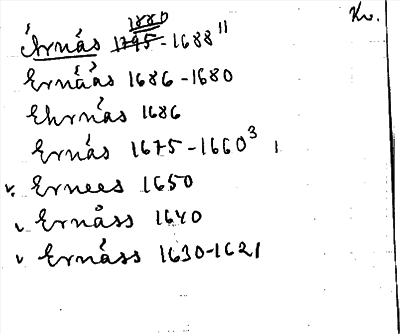 Kv.
1880
Årnäs 1795-1688"
Ernääs 1686-1680
Ehrnäs 1686
Ernäs 1675-1660³
v. Ernees 1650
v Ernåss 1640
v Ernäss 1630-1621